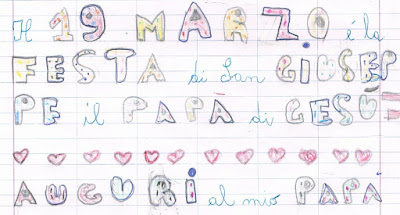 Il 19 MARZO è la
FESTA di San GIUSEP
PE il PAPÀ di GESÙ
AUGURI al mio PAPÀ